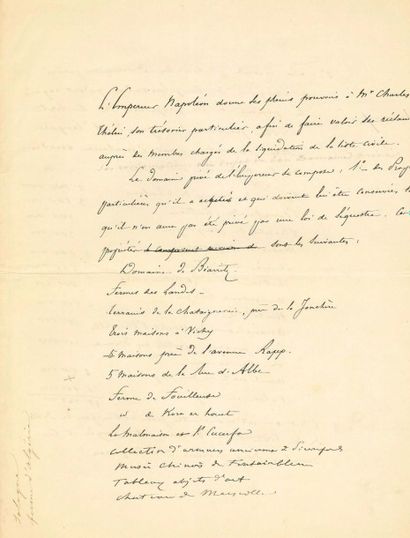 L'Empereur Napoléon donne des pleins pouvoirs à Mr Charles
Thélin, son trésorier particulier, afin de faire valoir ses réclam
auprès des membres chargés de la liquidation de la liste civile.
Le domaine privé de l'Empereur se compose: 1° des Prop
particulières qu'il a achetées et qui doivent lui être conservées
qu'il n'en aura pas été privé par une loi de séquestre.
propriétés sont les suivantes:
Domaine de Biarritz
Fermes des Landes
terrains de la Chataigneraie, près de la Jonchère
trois maisons à Vichy
5 maisons près de l'avenue Rapp.
5 maisons de la Rue d'Albe
Ferme de Fouilleuse
id de Korn er houet
La Malmaison et St Cucufa
collection d'armures anciennes à Pierrefonds
Musée chinois de Fontainebleau
Tableaux objets d'art
chateau de Marseille